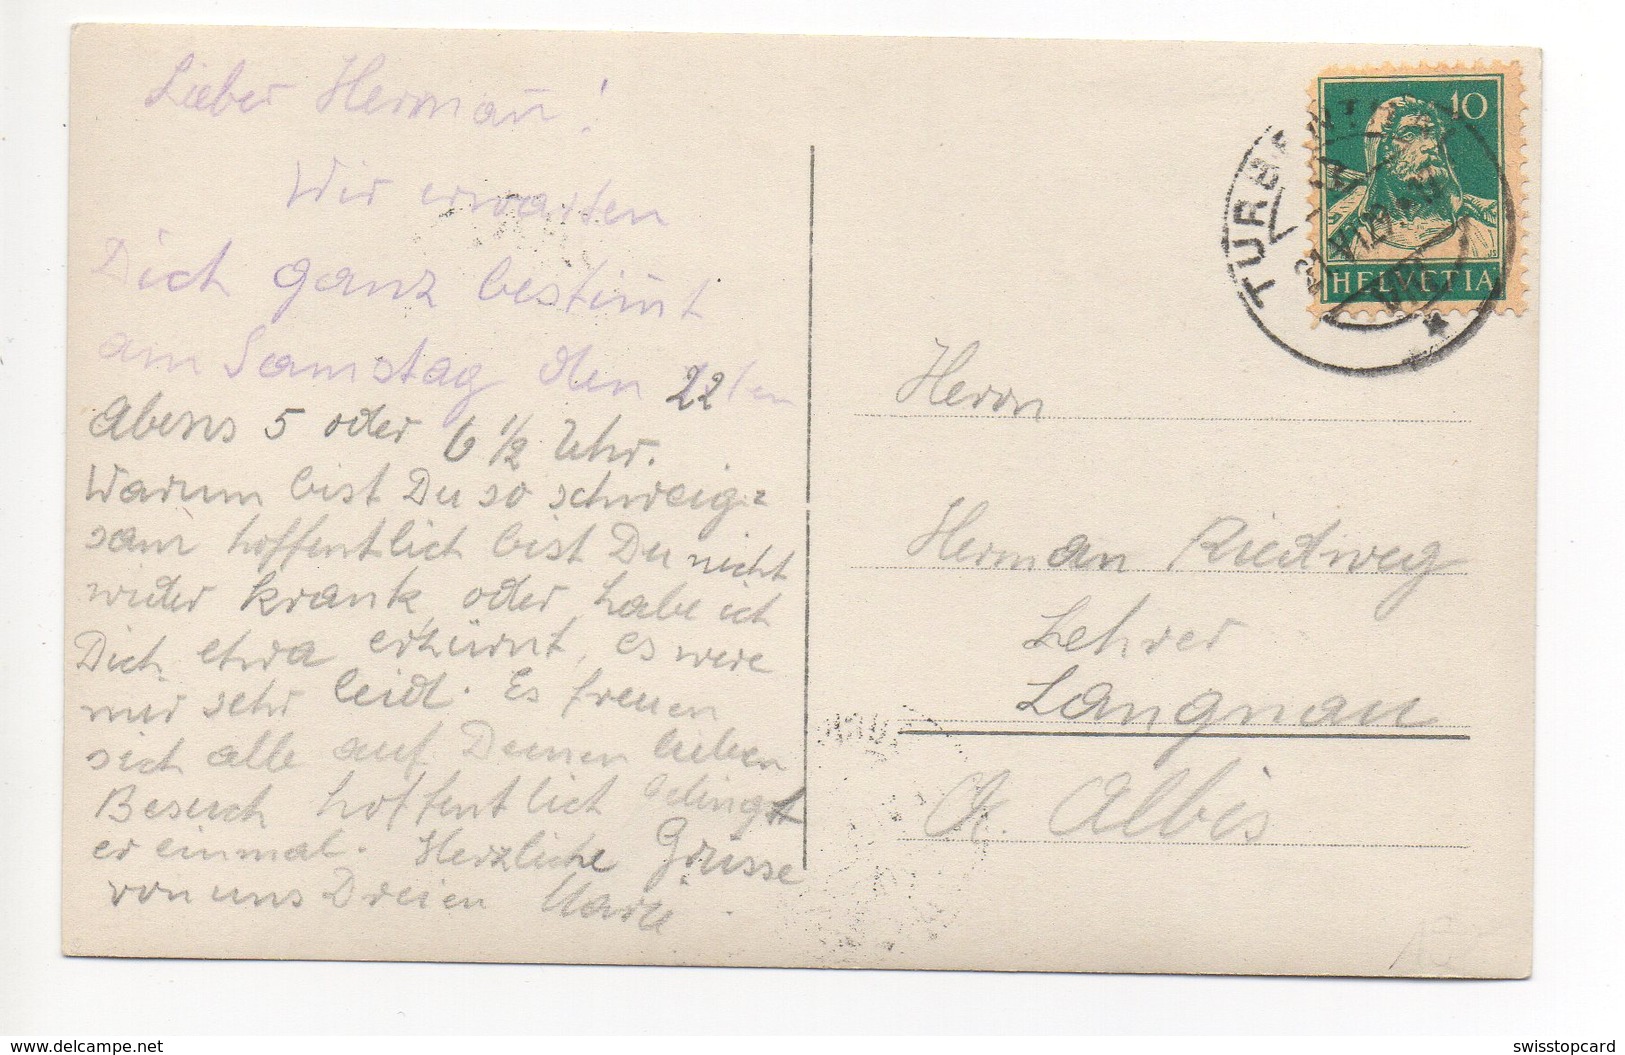 Lieber Herman̄!
Wir erwarten
Dich ganz bestim̄t
am Samstag den 22ten
Abens 5 oder 6 1/2 Uhr.
Warum bist Du so schweig=
sam hoffentlich bist Du nicht
wider krank, oder habe ich
Dich etwa erzürnt, es were
mir sehr leid. Es freuen
sich alle auf Deinen lieben
Besuch hoffentlich gelingt
er einmal. Herzliche Grüsse
von uns Dreien Marie
10
HELVETIA
TURBENTHAL
Herrn
Herman Riedweg
Lehrer
Langnau
a. Albis
www.delcampe.net
swisstopcard